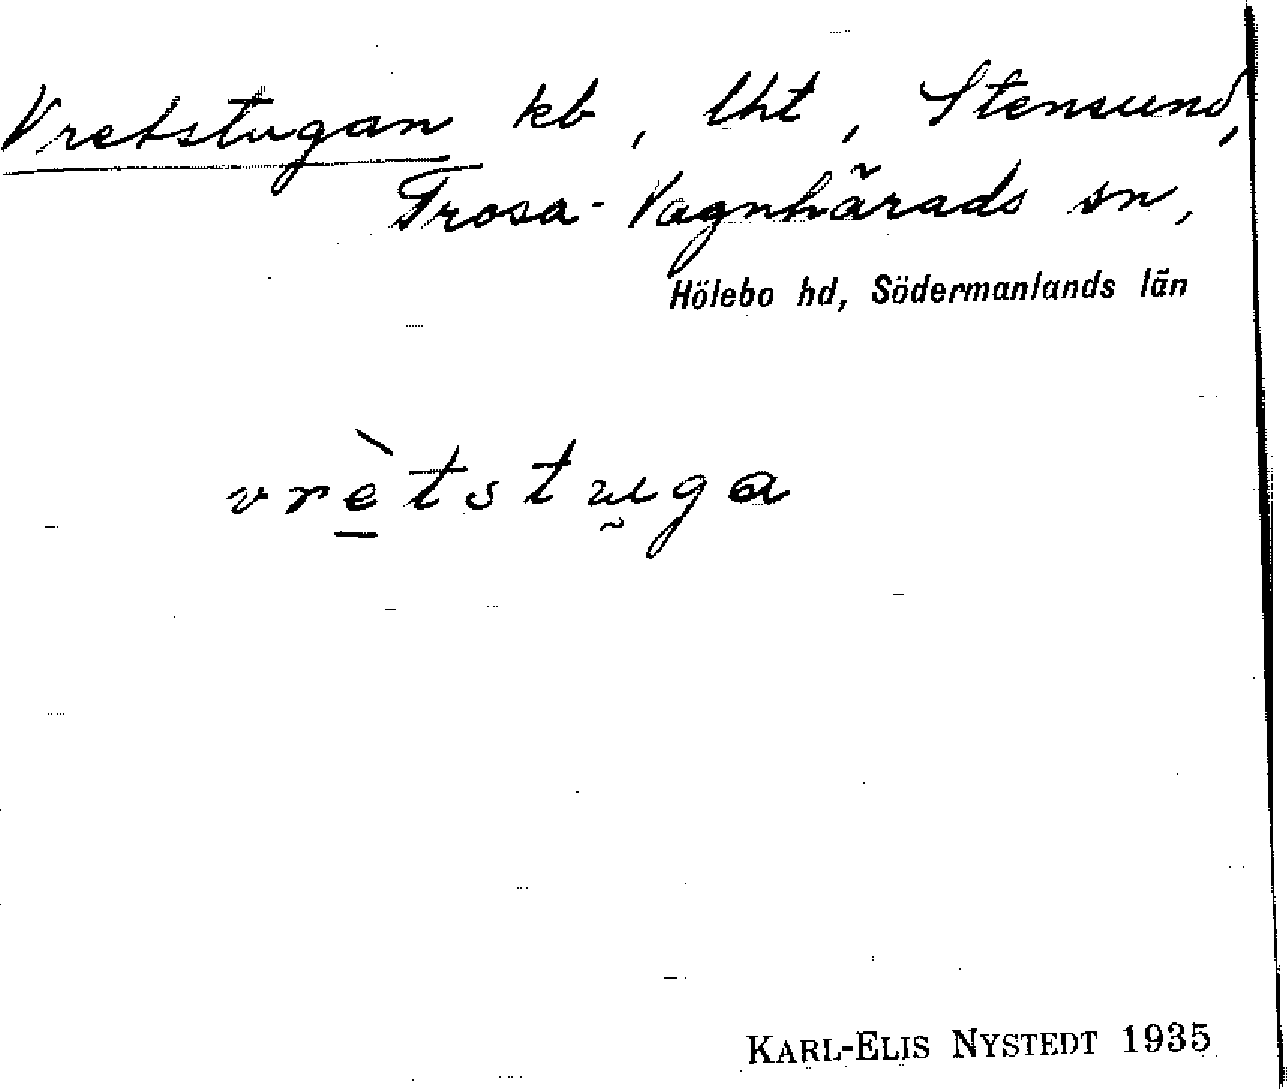 Vretstugan kb, lht, Stensund,
Trosa-Vagnhärads sn,
Hölebo hd, Södermanlands län
vrètstuga
KARL-ELIS NYSTEDT 1935